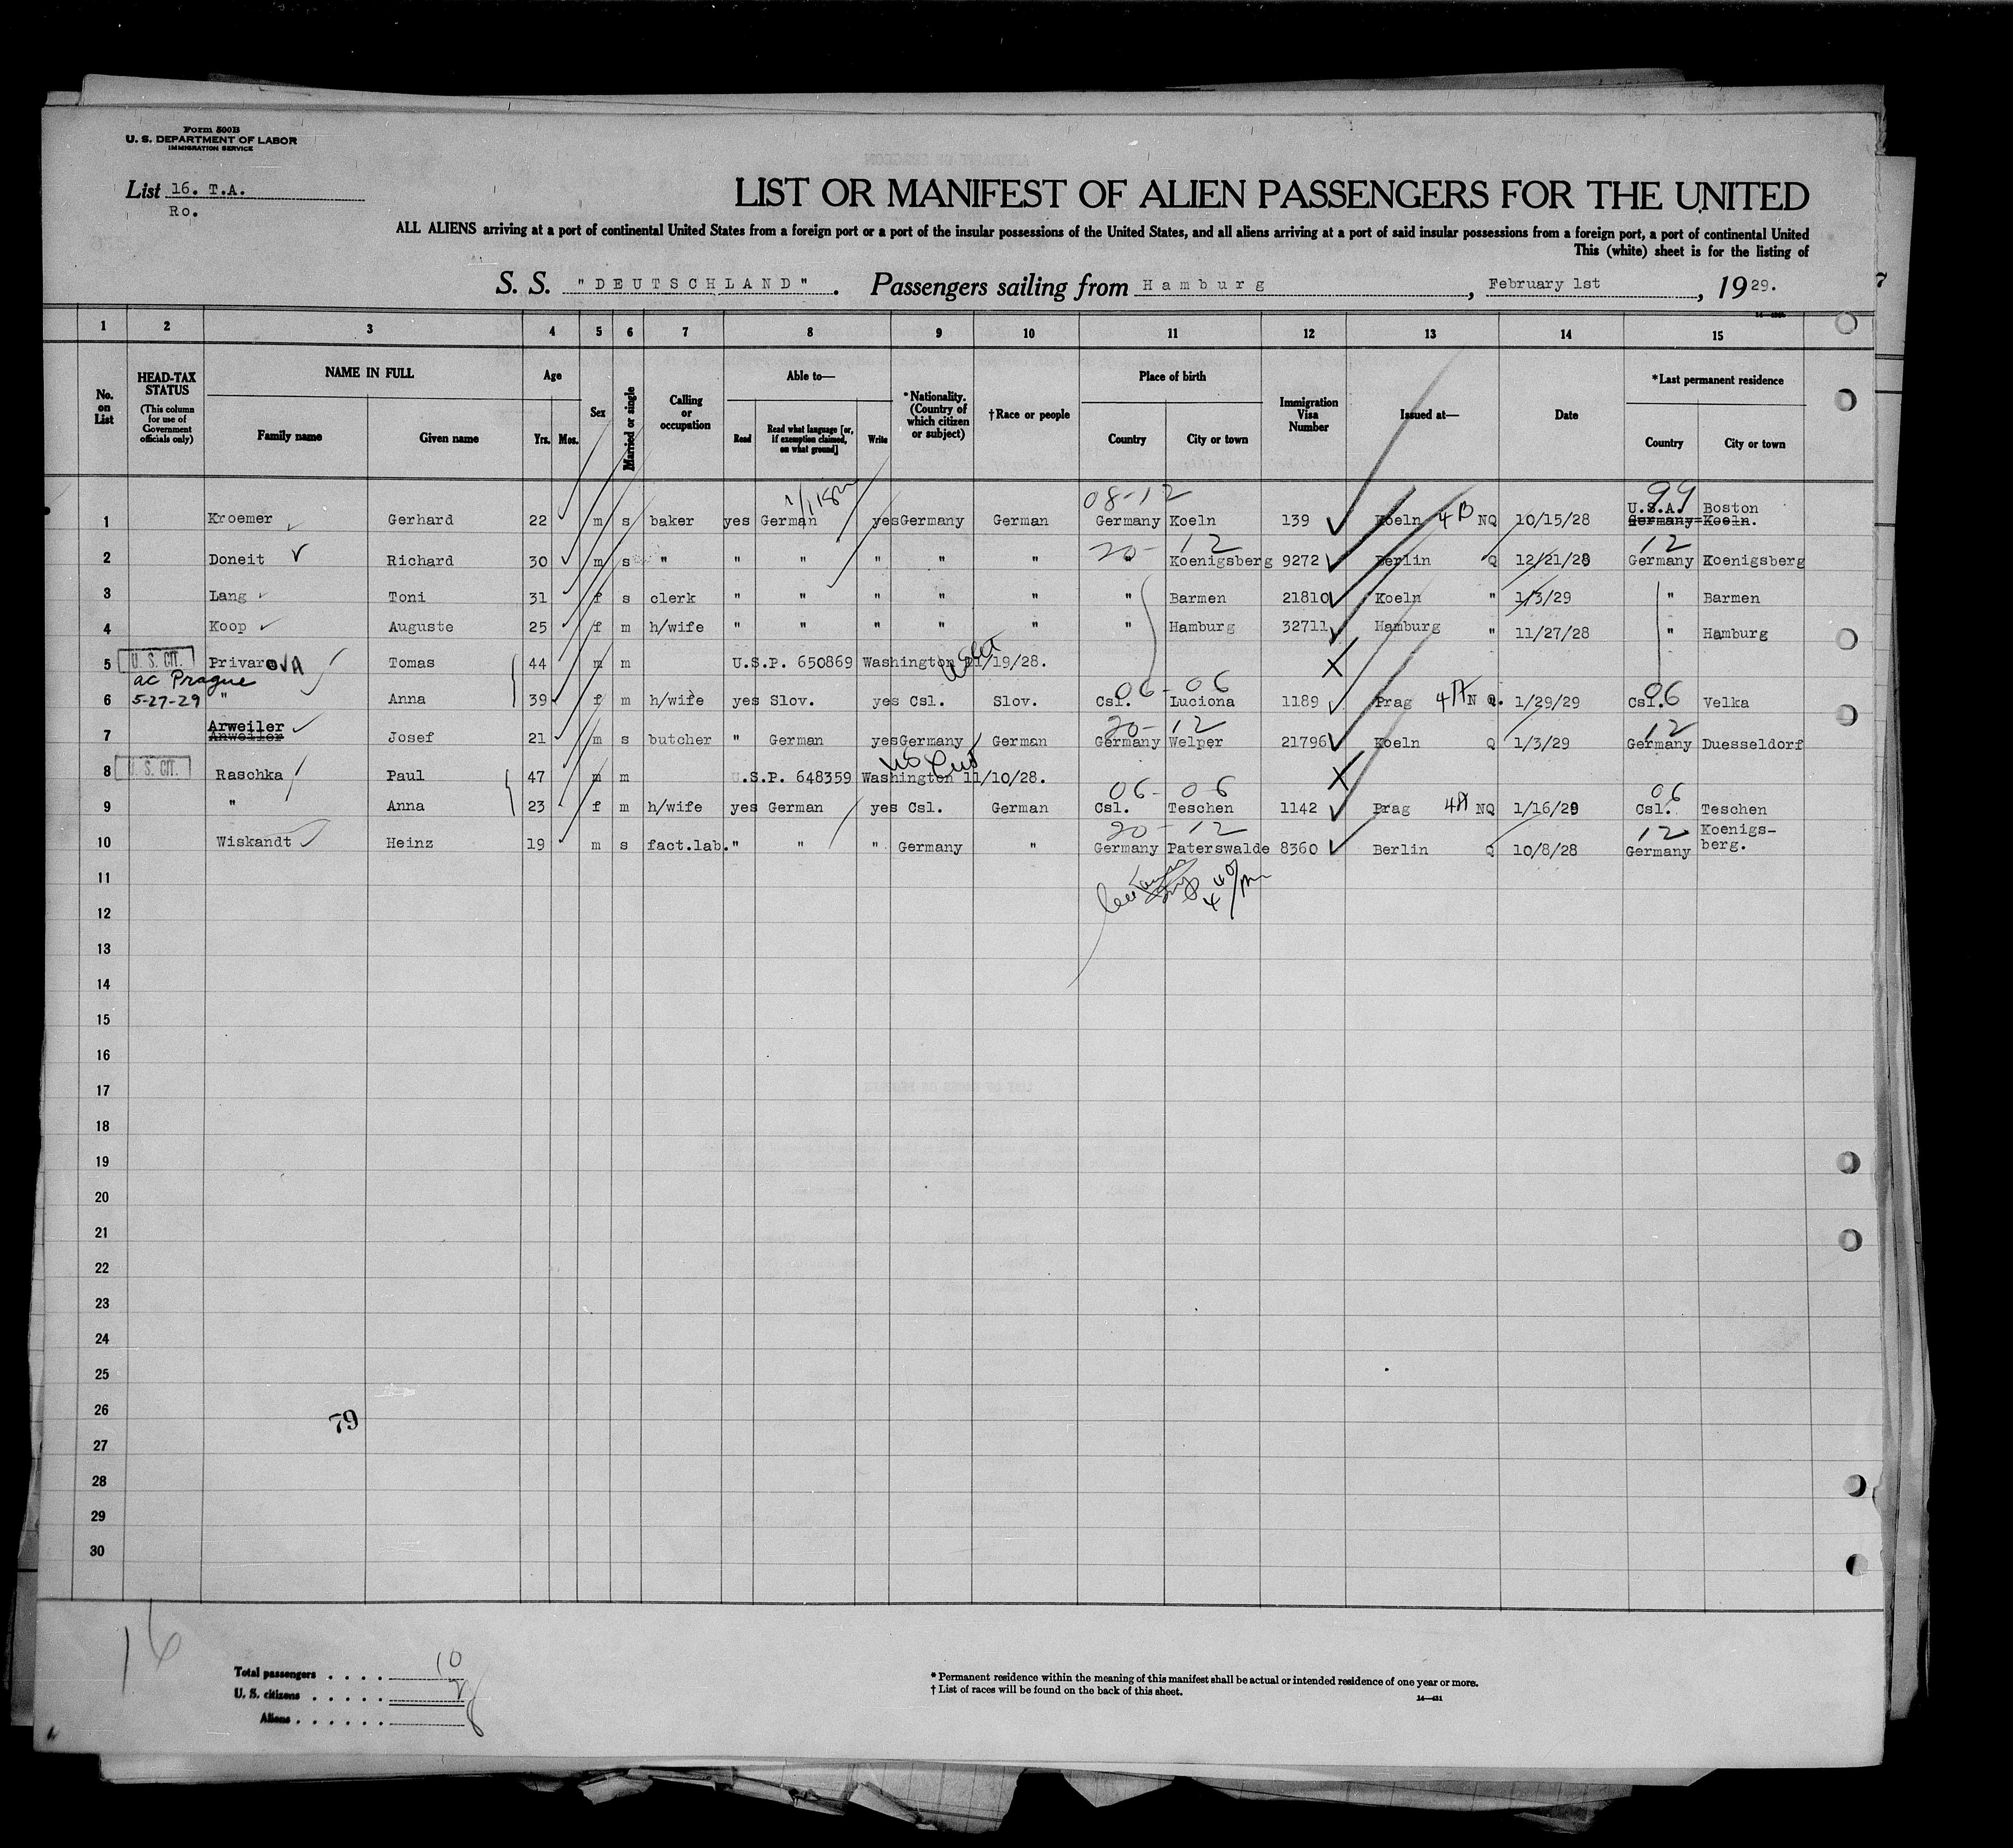 Form 500B
U. S. DEPARTMENT OF LABOR
IMMIGRATION SERVICE
List 16. T.A.
Ro.
LIST OR MANIFEST OF ALIEN PASSENGERS FOR THE UNITED
ALL ALIENS arriving at a port of continental United States from a foreign port or a port of the insular possessions of the United States, and all aliens arriving at a port of said insular possessions from a foreign port, a port of continental United
This (white) sheet is for the listing of
S. S. "DEUTSCHLAND". Passengers sailing from Hamburg, February 1st, 1929.
1 2 3 4 5 6 7 8 9 10 11 12 13 14 15
No. on List
HEAD-TAX STATUS
(This column for use of Government officials only)
NAME IN FULL
Family name Given name
Age
Yrs. Mos.
Sex
Married or single
Calling or occupation
Able to—
Read
Read what language [or, if exemption claimed, on what ground]
Write
*Nationality. (Country of which citizen or subject)
†Race or people
Place of birth
Country City or town
Immigration Visa Number
Issued at—
Date
*Last permanent residence
Country City or town
08-12 99
U.S.A. Boston
1 Kroemer Gerhard 22 m s baker yes German yes Germany German Germany Koeln 139 Koeln 4B NQ 10/15/28 Germany=Koeln.
20- 12 12
2 Doneit Richard 30 m s " " " " " " " Koenigsberg 9272 Berlin Q 12/21/28 Germany Koenigsberg
3 Lang Toni 31 f s clerk " " " " " " Barmen 21810 Koeln " 1/3/29 " Barmen
4 Koop Auguste 25 f m h/wife " " " " " " Hamburg 32711 Hamburg " 11/27/28 " Hamburg
5 U. S. CIT. PrivaroVA Tomas 44 m m U.S.P. 650869 Washington 11/19/28.
ac Prague
06-06 06
6 5-27-29 " Anna 39 f m h/wife yes Slov. yes Csl. Slov. Csl. Luciona 1189 Prag 4A N Q. 1/29/29 Csl. Velka
Arweiler 20-12 12
7 Anweiler Josef 21 m s butcher " German yes Germany German Germany Welper 21796 Koeln Q 1/3/29 Germany Duesseldorf
8 U. S. CIT. Raschka Paul 47 m m U.S.P. 648359 Washington 11/10/28.
06-06 06
9 " Anna 23 f m h/wife yes German yes Csl. German Csl. Teschen 1142 Prag 4A NQ 1/16/29 Csl. Teschen
20-12 12 Koenigs-
10 Wiskandt Heinz 19 m s fact.lab. " " " Germany " Germany Paterswalde 8360 Berlin Q 10/8/28 Germany berg.
11
12
13
14
15
16
17
18
19
20
21
22
23
24
25
26
79
27
28
29
30
16
Total passengers . . . . 10
U. S. citizens . . . . . 2
Aliens . . . . . . 8
* Permanent residence within the meaning of this manifest shall be actual or intended residence of one year or more.
† List of races will be found on the back of this sheet.
14—431